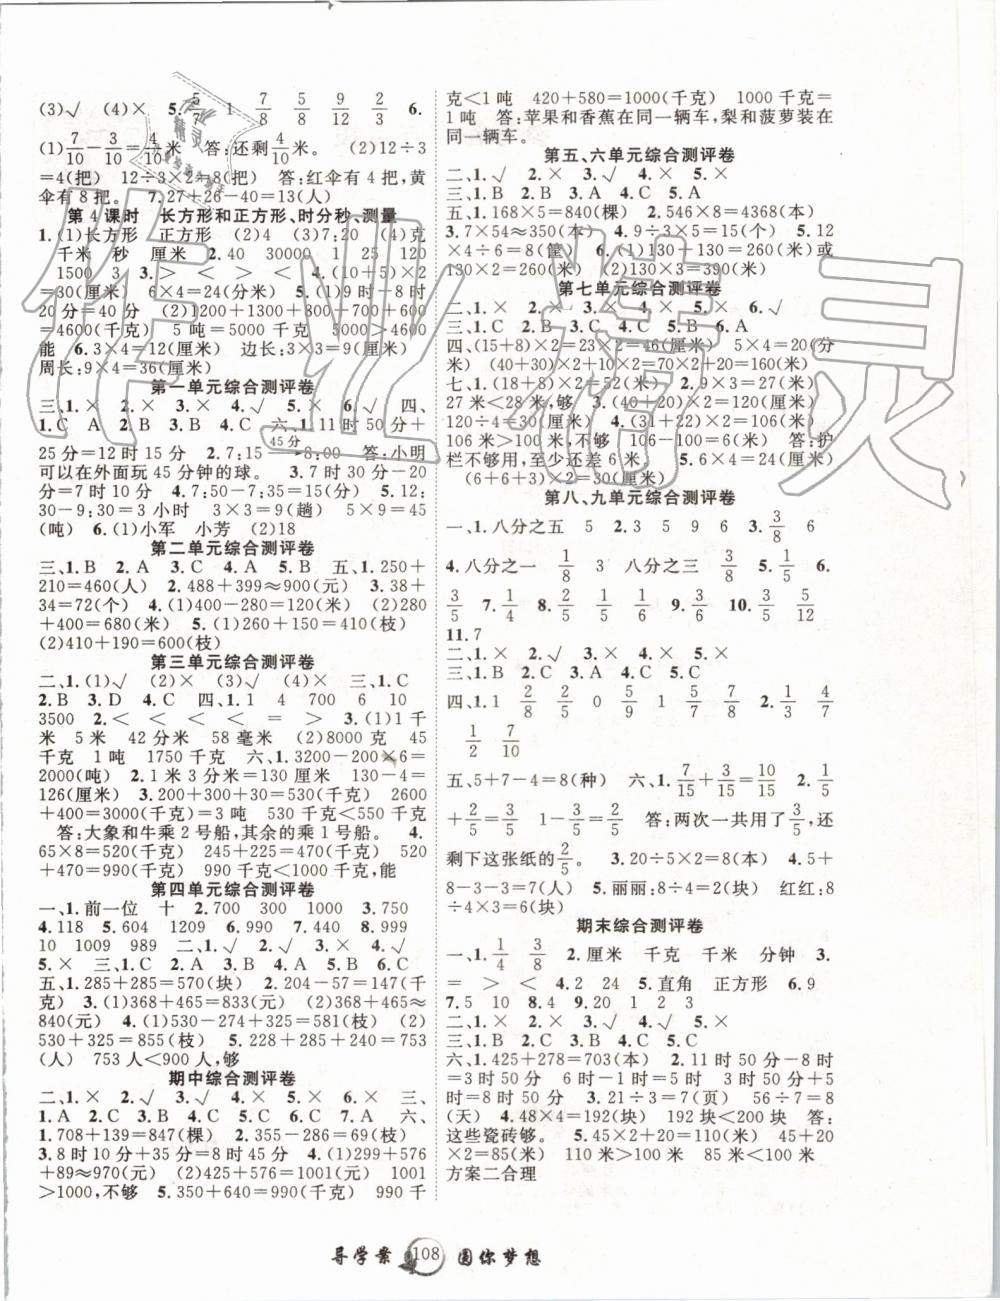 (3)√ (4)× 5. 5/7 1 7/8 5/8 9/12 2/3 6.
(1) 7/10－3/10＝4/10米 答:还剩4/10米。 (2)12÷3
＝4(把) 12÷3＝8(把) 答:红伞有4把,黄
伞有8把。 7.27＋26－40＝13(人)
第4课时 长方形和正方形、时分秒、测量
1.(1)长方形 正方形 (2)4 (3)7:20 (4)克
千米 秒 厘米 2.40 30000 1 25 120
1500 3 3.＞ ＜ ＞ ＜ 4.(10＋5)×2
＝30(厘米) 6×4＝24(分米) 5.(1)9时－8时
20分＝40分 (2)1200＋1300＋800＋700＋600
＝4600(千克) 5吨＝5000千克 5000＞4600
能 6.3×4＝12(厘米) 边长:3×3＝9(厘米)
周长:9×4＝36(厘米)
第一单元综合测评卷
三、1.× 2.× 3.× 4.√ 5.× 6.√ 四、
1.C 2.A 3.B 4.B 5.C 六、1.11时50分＋
25分＝12时15分 2.7:15 45分 8:00 答:小明
可以在外面玩45分钟的球。 3.7时30分－20
分＝7时10分 4.3×7＝21(元) 5.12:
30－9:30＝3小时 3×3＝9(趟) 5×9＝45
(吨) 6.(1)小军 小芳 (2)18
第二单元综合测评卷
三、1.B 2.A 3.C 4.A 5.B 五、1.250＋
210＝460(人) 2.488＋399≈900(元) 3.38＋
34＝72(个) 4.(1)400－280＝120(米) (2)280
＋400＝680(米) 5.(1)260＋150＝410(枝)
(2)410＋190＝600(枝)
第三单元综合测评卷
二、1.(1)√ (2)× (3)√ (4)× 三、1.C
2.B 3.D 4.C 四、1.1 4 700 6 10
3500 2.＜ ＜ ＜ ＜ ＝ ＞ 3.(1)1千
米 5米 42分米 58毫米 (2)8000克 45
千克 1吨 1750千克 六、1.3200－200×6＝
2000(吨) 2.1米3分米＝130厘米 130－4＝
126(厘米) 3.200＋300＋30＝530(千克) 2600
＋400＝3000(千克)＝3吨 530千克＜550千克
答:大象和牛乘2号船,其余的乘1号船。 4.
65×8＝520(千克) 245＋225＝470(千克) 520
＋470＝990(千克) 990千克＜1000千克,能
第四单元综合测评卷
一、1.前一位 十 2.700 300 1000 3.750
4.118 5.604 1209 6.990 7.440 8.999
10 1009 989 二、1.√ 2.√ 3.× 4.√
5.× 三、1.C 2.A 3.A 4.B 5.C
五、1.285＋285＝570(块) 2.204－57＝147(千
克) 3.(1)368＋465＝833(元) (2)368＋465≈
840(元) 4.(1)530－274＋325＝581(枝) (2)
530＋325＝855(枝) 5.228＋285＋240＝753
(人) 753人＜900人,够
期中综合测评卷
二、1.× 2.√ 3.√ 4.× 5.× 6.× 三、
1.A 2.C 3.B 4.B 5.B 6.C 7.A 六、
1.708＋139＝847(棵) 2.355－286＝69(棵)
3.8时10分＋35分＝8时45分 4.(1)299＋576
＋89≈970(元) 2.425＋576＝1001(元) 1001
＞1000,不够 5.350＋640＝990(千克) 990千
克＜1吨 420＋580＝1000(千克) 1000千克＝
1吨 答:苹果和香蕉在同一辆车,梨和菠萝装在
同一辆车。
第五、六单元综合测评卷
二、1.√ 2.× 3.× 4.× 5.×
三、1.B 2.B 3.A 4.C 5.A
五、1.168×5＝840(棵) 2.546×8＝4368(本)
3.7×54≈350(本) 4.9÷3×5＝15(个) 5.12
×4÷6＝8(筐) 6.(1)130＋130＝260(米)或
130×2＝260(米) (2)130×3＝390(米)
第七单元综合测评卷
二、1.× 2.√ 3.× 4.× 5.× 6.√
三、1.C 2.C 3.C 4.B 5.B 6.A
四、(15＋8)×2＝23×2＝46(厘米) 5×4＝20(分
米) (40＋30)×2＋10×2＝70×2＋20＝160(米)
七、1.(18＋8)×2＝52(米) 2.9×3＝27(米)
27米＜28米,够 3.(40＋20)×2＝120(厘米)
120÷4＝30(厘米) 4.(31＋22)×2＝106(米)
106米＞100米,不够 106－100＝6(米) 答:护
栏不够用,至少还差6米。 5.3×7＝21(厘米)
(6＋6＋3)×2＝30(厘米)
第八、九单元综合测评卷
一、1.八分之五 5 2.3 5 9 6 3. 3/8 6
4.八分之一 1/8 3 八分之三 3/8 5. 1/5 6.
3/5 7. 1/4 8. 2/5 1/5 1/6 9. 3/6 10. 3/5 5/12
11.7
二、1.× 2.× 3.√ 4.× 5.√
三、1.B 2.C 3.C 4.A 5.C
四、1.1 2/8 2/8 0 5/9 1/5 7/8 2. 1/3 4/7
1/2 7/10
五、5＋7－4＝8(种) 六、1. 7/15＋3/15＝10/15 2. 1/5
＋2/5＝3/5 1－3/5＝2/5 答:两次一共用了3/5,还
剩下这张纸的2/5。 3.20÷5×2＝8(块) 4.5＋
8－3－3＝7(人) 5.丽丽:8÷4＝2(块) 红红:8
÷4×3＝6(块)
期末综合测评卷
一、1. 1/4 3/8 2.厘米 千克 千米 分钟 3.
＝ ＞ ＜ 4.2 24 5.直角 正方形 6.9
7.5 10 8.4 9.20 1 2
二、1.× 2.× 3.√ 4.√ 5.×
三、1.B 2.C 3.A 4.C 5.B
六、1.425＋278＝703(本) 2.11时50分－8时
＝3时50分 3.21÷3＝7(页) 56÷7＝8
(天) 4.48×4＝192(块) 192块＜200块 答:
这些瓷砖够。 5.45×2＋20＝110(米) (45＋20)
×2－45＝85(米) 110米＞100米 85米＜100米
方案二合理
导学案 108 圆你梦想
作业精灵